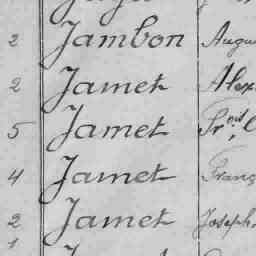 2 Jambon Augu
2 Jamet Alex
5 Jamet Fr.ois
4 Jamet Franç
2 Jamet Joseph
1